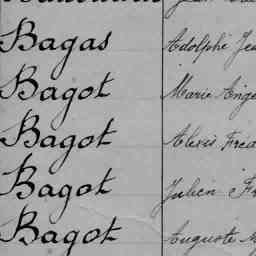 Bagas Adolphe
Bagot Marie
Bagot Alexis
Bagot Julien
Bagot Auguste